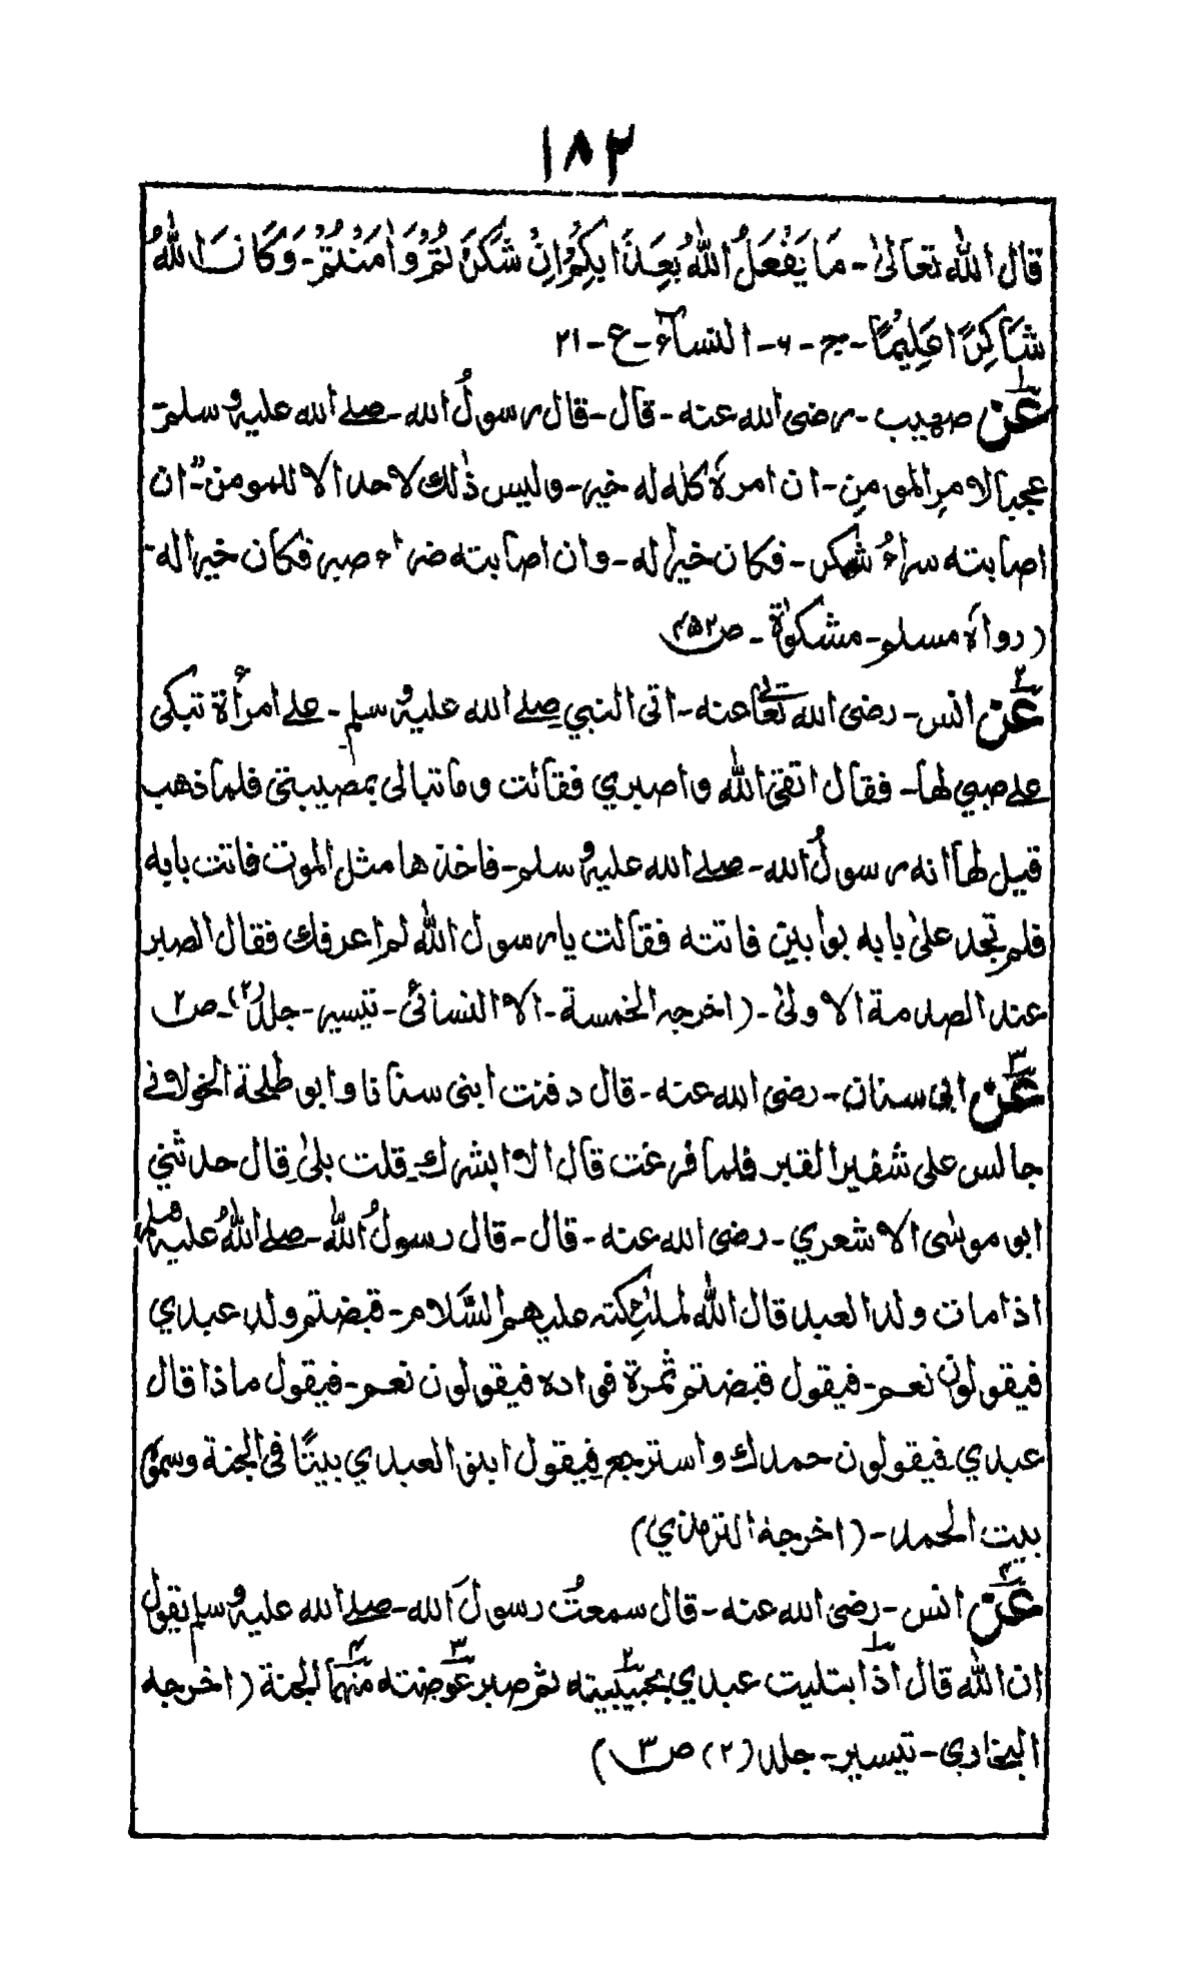 ١٨٣
قال الله تعالىٰ - مَا يَفْعَلُ اللهُ بِعَذَابِكُمْ اِنْ شَكَرْتُمْ وَاٰمَنْتُمْ - وَكَانَ اللهُ
شَاكِرًا عَلِيْمًا - ج - ٦ - النسآء - ع - ٢١
عن صهيب - رضى الله عنه - قال - قال رسولُ الله - صلے الله عليه وسلم -
عجبا لامرِ المومنِ - ان امرهٗ كله له خير - وليس ذٰلك لاحد الا للمومن - ان
اصابته سراءُ شكر - فكان خيراً له - وان اصابته ضراء صبر فكان خيرا له -
(رواهٗ مسلم - مشكوٰة - ص ٤٥٢
عن انس - رضى الله تعالىٰ عنه - اتى النبي صلے الله عليه وسلم - علے امرأة تبكى
علے صبي لها - فقال اتقى الله واصبري فقالت وما تبالى بمصيبتى فلما ذهب
قيل لها انه رسولُ الله - صلے الله عليه وسلم - فاخذها مثل الموت فاتت بابه
فلم تجد علىٰ بابه بوابين فاتته فقالت يا رسول الله لم اعرفك فقال الصبر
عند الصدمة الاولىٰ - (اخرجه الخمسة - الا النسائى - تيسير - جلد (٢) - ص ٢
عن ابى سنان - رضى الله عنه - قال دفنت ابنى سنانا وابو طلحة الخولانے
جالس على شفير القبر فلما فرغت قال الا ابشرك - قلت بلىٰ قال حدثني
ابو موسٰى الاشعري - رضى الله عنه - قال - قال رسولُ الله - صلے اللهُ عليه وسلم
اذا مات ولد العبد قال الله لملٰئكته عليهم السَّلام - قبضتم ولد عبدي
فيقولون نعم - فيقول قبضتم ثمرة فواده فيقولون نعم - فيقول ماذا قال
عبدي فيقولون حمدك واسترجع فيقول ابنوا لعبدي بيتًا فى الجنة وسموه
بيت الحمد - (اخرجه الترمذي)
عن انس - رضى الله عنه - قال سمعتُ رسولَ الله - صلے الله عليه وسلم يقول
ان الله قال اذا ابتليت عبدي بحبيبيته ثم صبر عوضته منهما الجنة (اخرجه
البخاري - تيسير - جلد (٢) ص ٣)